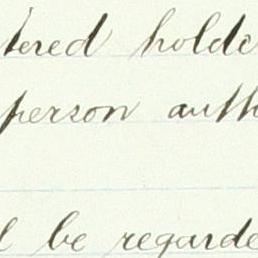 tered holde
person auth
l be regarde